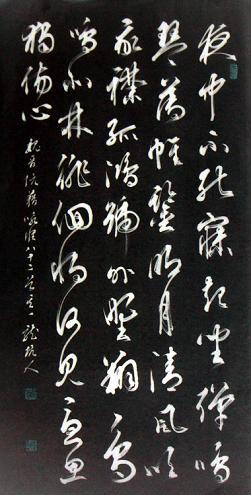 夜中不能寐起坐彈鳴
琴薄帷鑒明月清風吹
我襟孤鴻號外野翔鳥
鳴北林徘徊將何見憂思
獨傷心
魏晉阮籍詠懷八十二首其一